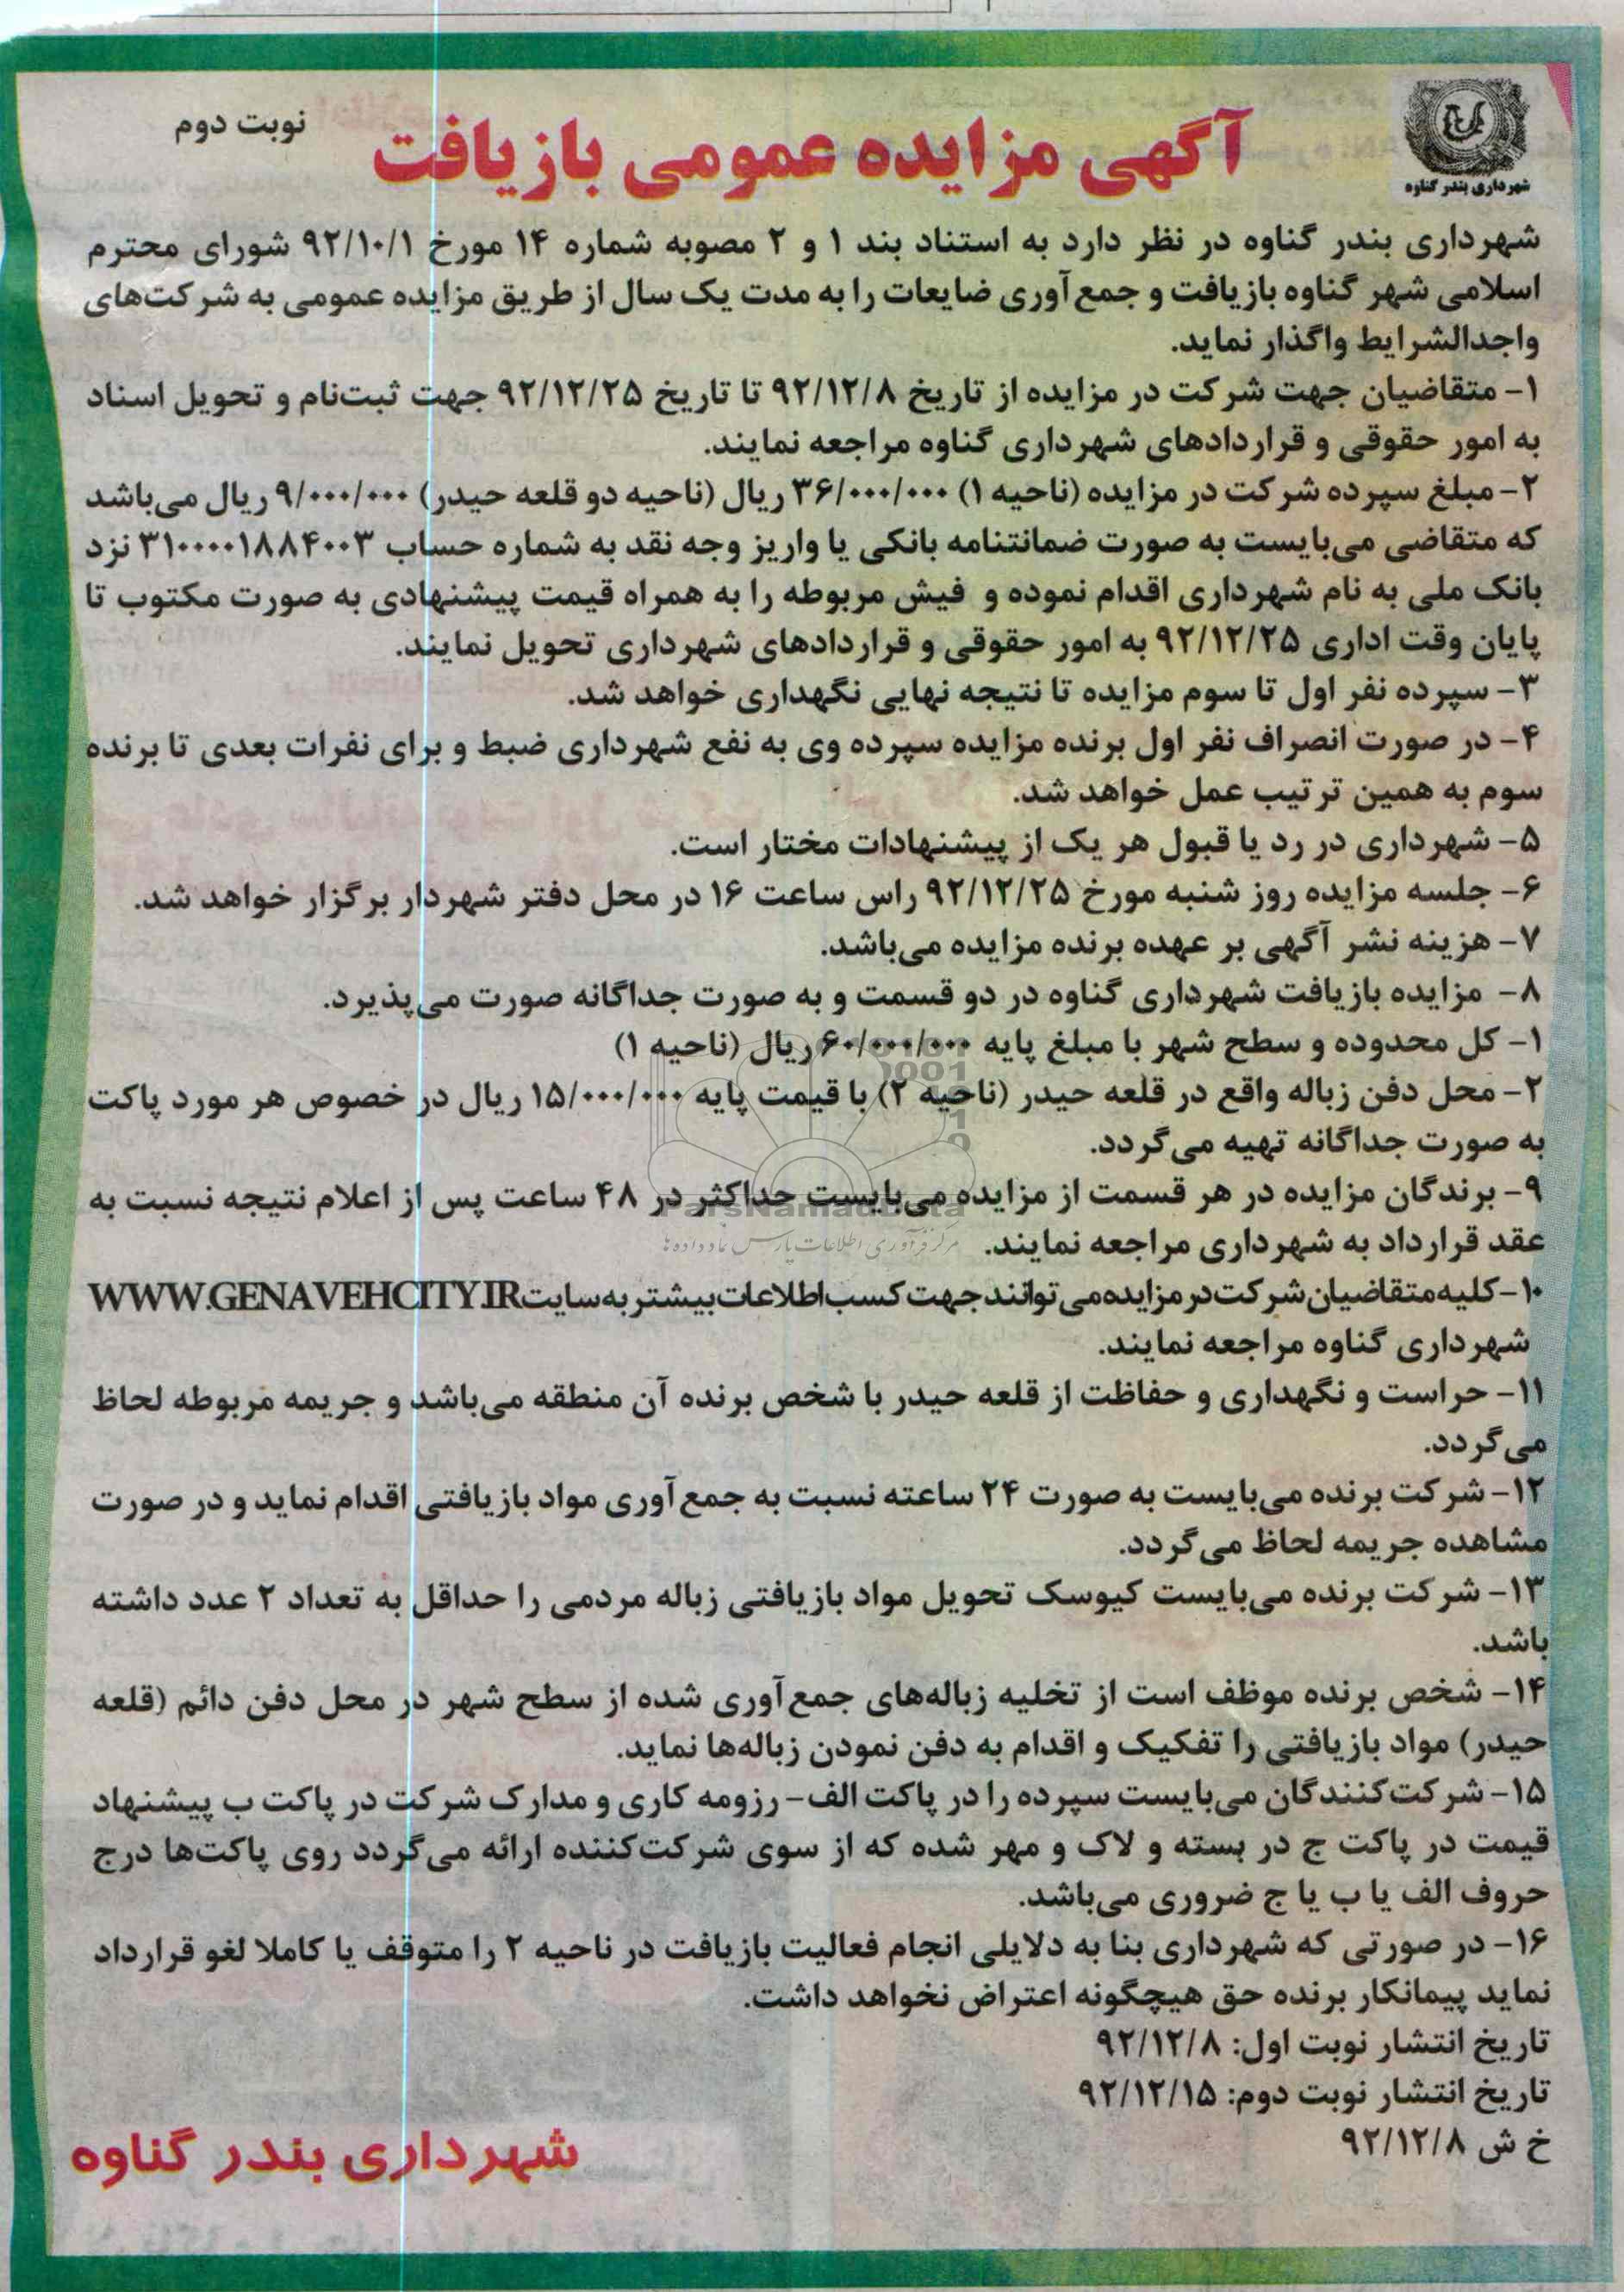 شهرداری بندر گناوه
نوبت دوم
آگهی مزایده عمومی بازیافت
شهرداری بندر گناوه در نظر دارد به استناد بند ۱ و ۲ مصوبه شماره ۱۴ مورخ ۹۲/۱۰/۱ شورای محترم
اسلامی شهر گناوه بازیافت و جمع‌آوری ضایعات را به مدت یک سال از طریق مزایده عمومی به شرکت‌های
واجدالشرایط واگذار نماید.
۱- متقاضیان جهت شرکت در مزایده از تاریخ ۹۲/۱۲/۸ تا تاریخ ۹۲/۱۲/۲۵ جهت ثبت‌نام و تحویل اسناد
به امور حقوقی و قراردادهای شهرداری گناوه مراجعه نمایند.
۲- مبلغ سپرده شرکت در مزایده (ناحیه ۱) ۳۶/۰۰۰/۰۰۰ ریال (ناحیه دو قلعه حیدر) ۹/۰۰۰/۰۰۰ ریال می‌باشد
که متقاضی می‌بایست به صورت ضمانتنامه بانکی یا واریز وجه نقد به شماره حساب ۳۱۰۰۰۰۱۸۸۴۰۰۳ نزد
بانک ملی به نام شهرداری اقدام نموده و فیش مربوطه را به همراه قیمت پیشنهادی به صورت مکتوب تا
پایان وقت اداری ۹۲/۱۲/۲۵ به امور حقوقی و قراردادهای شهرداری تحویل نمایند.
۳- سپرده نفر اول تا سوم مزایده تا نتیجه نهایی نگهداری خواهد شد.
۴- در صورت انصراف نفر اول برنده مزایده سپرده وی به نفع شهرداری ضبط و برای نفرات بعدی تا برنده
سوم به همین ترتیب عمل خواهد شد.
۵- شهرداری در رد یا قبول هر یک از پیشنهادات مختار است.
۶- جلسه مزایده روز شنبه مورخ ۹۲/۱۲/۲۵ راس ساعت ۱۶ در محل دفتر شهردار برگزار خواهد شد.
۷- هزینه نشر آگهی بر عهده برنده مزایده می‌باشد.
۸- مزایده بازیافت شهرداری گناوه در دو قسمت و به صورت جداگانه صورت می‌پذیرد.
۱- کل محدوده و سطح شهر با مبلغ پایه ۶۰/۰۰۰/۰۰۰ ریال (ناحیه ۱)
۲- محل دفن زباله واقع در قلعه حیدر (ناحیه ۲) با قیمت پایه ۱۵/۰۰۰/۰۰۰ ریال در خصوص هر مورد پاکت
به صورت جداگانه تهیه می‌گردد.
۹- برندگان مزایده در هر قسمت از مزایده می‌بایست حداکثر در ۴۸ ساعت پس از اعلام نتیجه نسبت به
ParsNamadData
عقد قرارداد به شهرداری مراجعه نمایند.
مرکز فرآوری اطلاعات پارس نماد داده‌ها
۱۰- کلیه متقاضیان شرکت در مزایده می‌توانند جهت کسب اطلاعات بیشتر به سایت WWW.GENAVEHCITY.IR
شهرداری گناوه مراجعه نمایند.
۱۱- حراست و نگهداری و حفاظت از قلعه حیدر با شخص برنده آن منطقه می‌باشد و جریمه مربوطه لحاظ
می‌گردد.
۱۲- شرکت برنده می‌بایست به صورت ۲۴ ساعته نسبت به جمع‌آوری مواد بازیافتی اقدام نماید و در صورت
مشاهده جریمه لحاظ می‌گردد.
۱۳- شرکت برنده می‌بایست کیوسک تحویل مواد بازیافتی زباله مردمی را حداقل به تعداد ۲ عدد داشته
باشد.
۱۴- شخص برنده موظف است از تخلیه زباله‌های جمع‌آوری شده از سطح شهر در محل دفن دائم (قلعه
حیدر) مواد بازیافتی را تفکیک و اقدام به دفن نمودن زباله‌ها نماید.
۱۵- شرکت‌کنندگان می‌بایست سپرده را در پاکت الف- رزومه کاری و مدارک شرکت در پاکت ب پیشنهاد
قیمت در پاکت ج در بسته و لاک و مهر شده که از سوی شرکت‌کننده ارائه می‌گردد روی پاکت‌ها درج
حروف الف یا ب یا ج ضروری می‌باشد.
۱۶- در صورتی که شهرداری بنا به دلایلی انجام فعالیت بازیافت در ناحیه ۲ را متوقف یا کاملا لغو قرارداد
نماید پیمانکار برنده حق هیچگونه اعتراض نخواهد داشت.
تاریخ انتشار نوبت اول: ۹۲/۱۲/۸
تاریخ انتشار نوبت دوم: ۹۲/۱۲/۱۵
خ ش ۹۲/۱۲/۸
شهرداری بندر گناوه